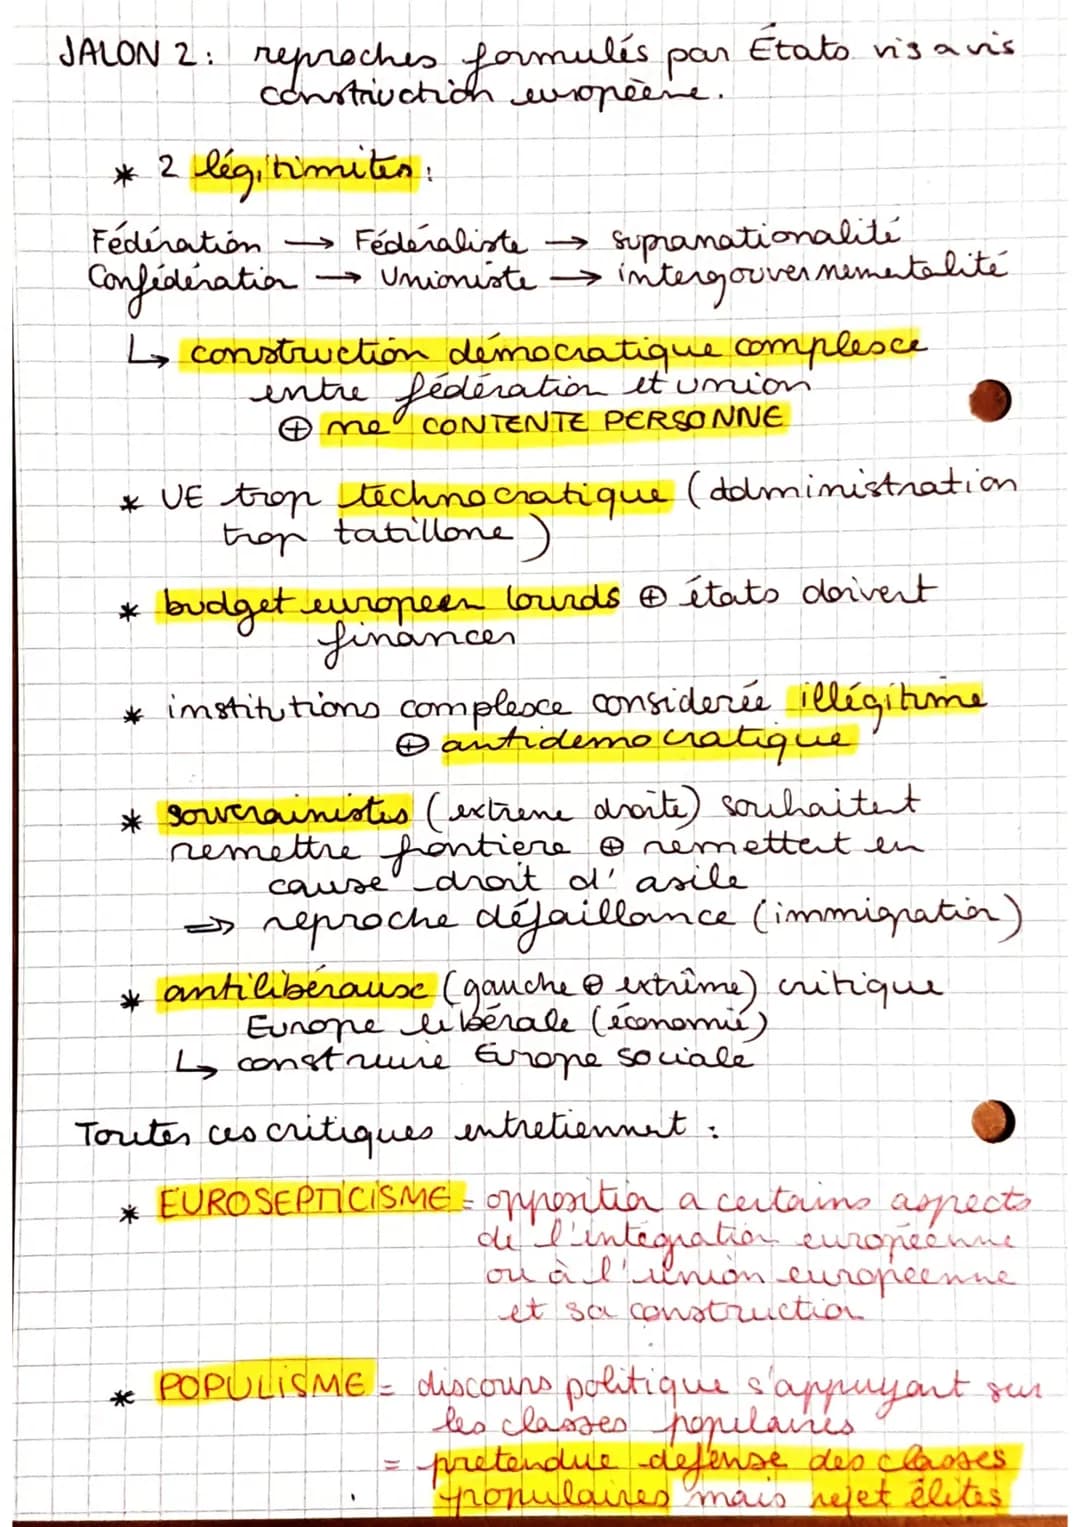 JALON 2: reproches formulés par États vis a vis
construction européene.
* 2 légitimites:
Fédération → Fédéraliste → supranationalité
Confédération → Unioniste → intergouvernementalité
↳ construction démocratique complexe
entre fédération et union
⊕ ne CONTENTE PERSONNE
* UE trop technocratique (administration
trop tatillone)
* budget europeen lourds ⊕ états doivent
financer
* institutions complexe considerée illégitime
⊕ antidemocratique
* souverainistes (extrene droite) souhaitent
remettre frontiere ⊕ remettent en
cause droit d'asile
⇒ reproche défaillance (immigration)
* antilibéraux (gauche ⊕ extrême) critique
Europe libérale (économie)
↳ construire Europe sociale
Toutes ces critiques entretiennent :
* EUROSEPTICISME = opposition a certains aspects
de l'intégration européenne
ou à l'union européenne
et sa construction
* POPULISME = discours politique s'appuyant sur
les classes populaires
= pretendue defense des classes
populaires mais rejet élites